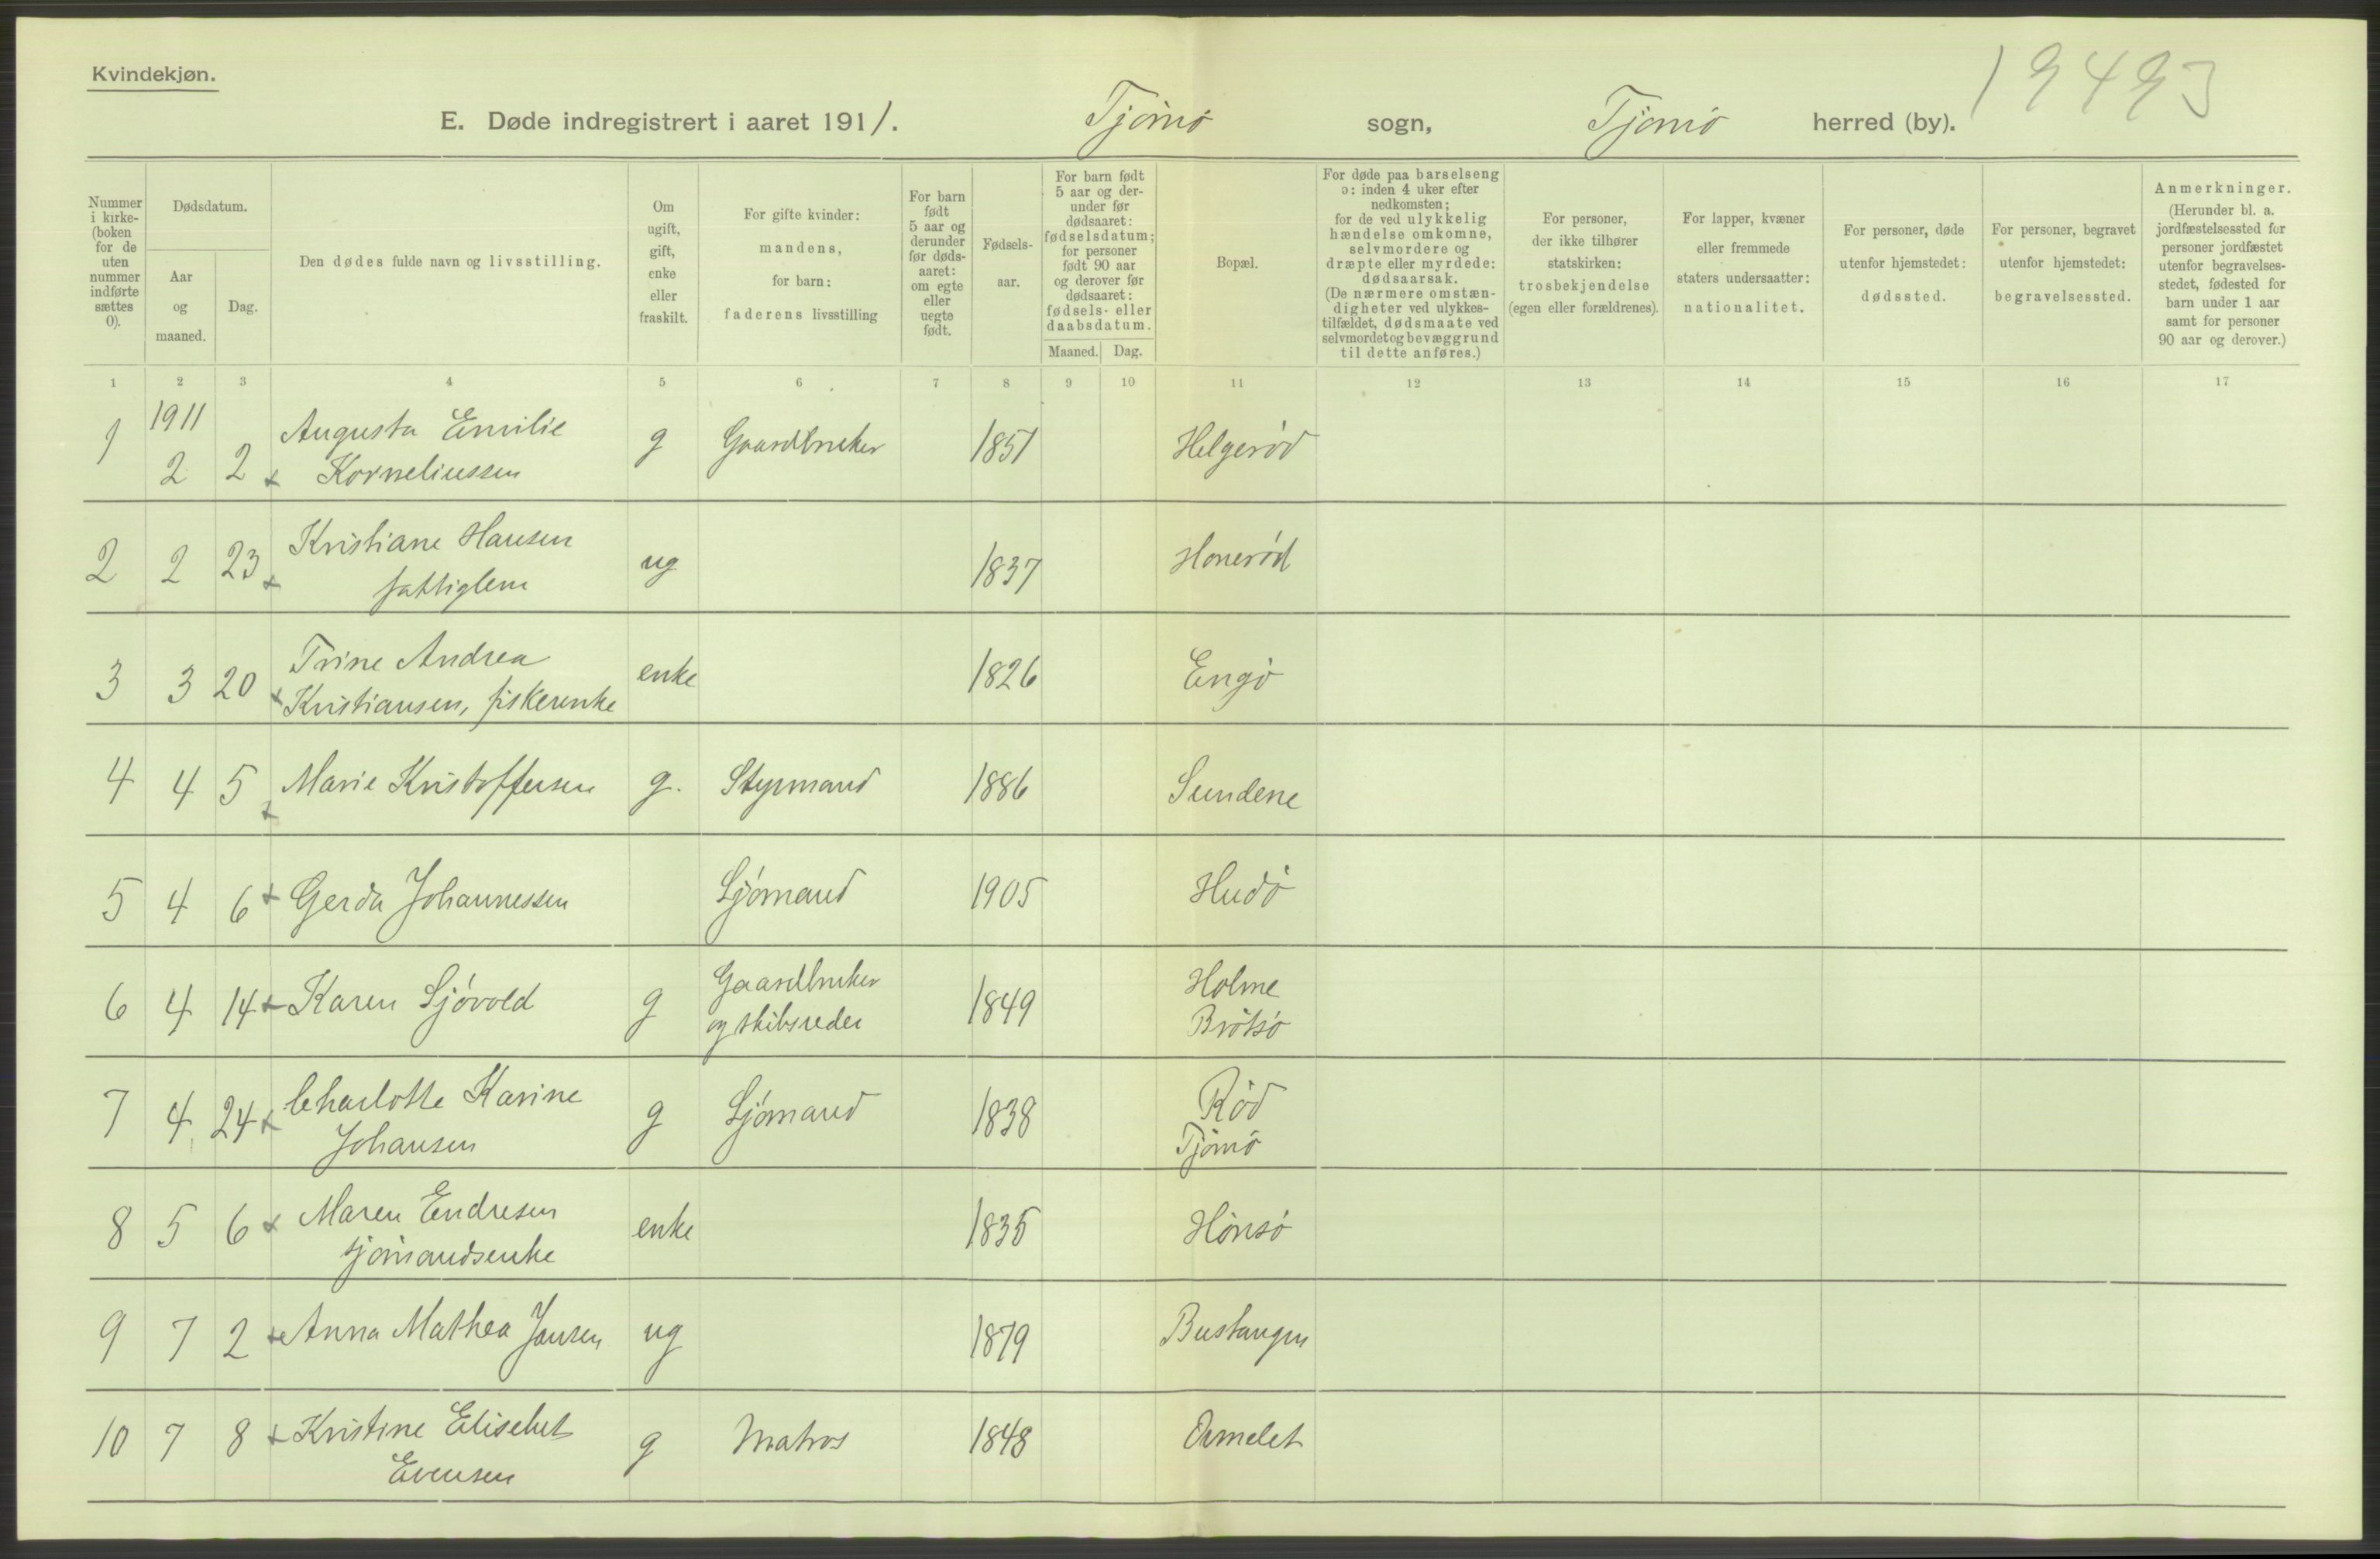 Kvindekjøn.
19493
E. Døde indregistrert i aaret 1911. Tjømø sogn, Tjømø herred (by).
Nummer i kirke- (boken for de uten nummer indførte sættes 0).
Dødsdatum.
Aar og maaned.
Dag.
Den dødes fulde navn og livsstilling.
Om ugift, gift, enke eller fraskilt.
For gifte kvinder: mandens, for barn: faderens livsstilling
For barn født 5 aar og derunder før døds- aaret: om egte eller uegte født.
Fødsels- aar.
For barn født 5 aar og der- under før dødsaaret: fødselsdatum; for personer født 90 aar og derover før dødsaaret: fødsels- eller daabsdatum.
Maaned. Dag.
Bopæl.
For døde paa barselseng ɔ: inden 4 uker efter nedkomsten; for de ved ulykkelig hændelse omkomne, selvmordere og dræpte eller myrdede: dødsaarsak. (De nærmere omstæn- digheter ved ulykkes- tilfældet, dødsmaate ved selvmordet og bevæggrund til dette anføres.)
For personer, der ikke tilhører statskirken: trosbekjendelse (egen eller forældrenes).
For lapper, kvæner eller fremmede staters undersaatter: nationalitet.
For personer, døde utenfor hjemstedet: dødssted.
For personer, begravet utenfor hjemstedet: begravelsessted.
Anmerkninger. (Herunder bl. a. jordfæstelsessted for personer jordfæstet utenfor begravelses- stedet, fødested for barn under 1 aar samt for personer 90 aar og derover.)
1 2 3 4 5 6 7 8 9 10 11 12 13 14 15 16 17
1911
1 2 2 x Augusta Emilie Korneliussen g Gaardbruker 1851 Helgerød
2 2 23 x Kristiane Hansen fattiglem ug 1837 Honerød
3 3 20 x Trine Andrea Kristiansen, fiskerenke enke 1826 Engø
4 4 5 x Marie Kristoffersen g. Styrmand 1886 Sundene
5 4 6 x Gerda Johannessen Sjømand 1905 Hudø
6 4 14 x Karen Sjøvold g Gaardbruker og skibsreder 1849 Holme Brøtsø
7 4 24 x Charlotte Karine Johansen g Sjømand 1838 Rød Tjømø
8 5 6 x Maren Endresen sjømandsenke enke 1835 Hønsø
9 7 2 x Anna Mathea Jansen ug 1879 Bustangen
10 7 8 x Kristine Elisebet Evensen g Matros 1848 Ormelet